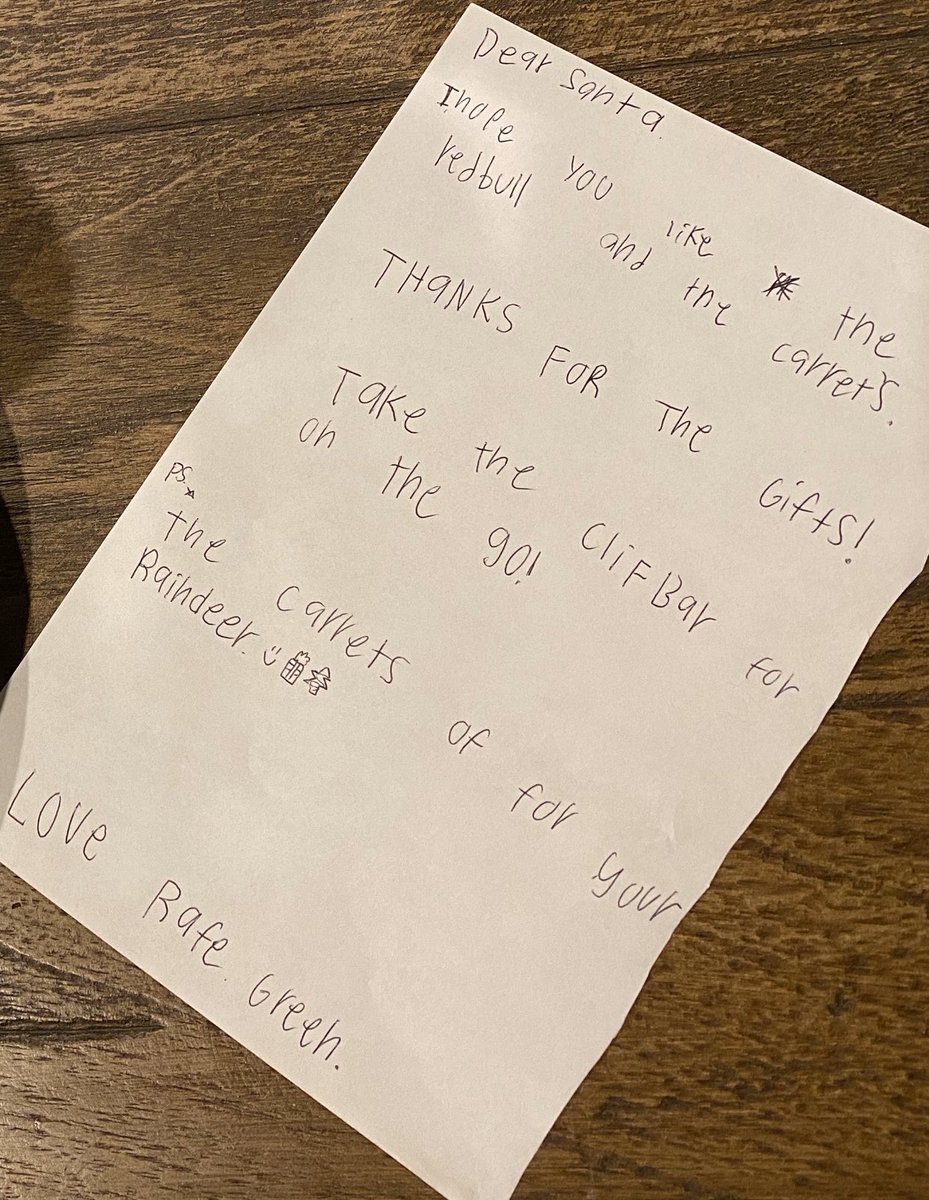 Dear Santa.
I hope you like the
redbull and the carrets.
THaNKS FOR The Gifts!
Take the CliFBar for
on the go!
PS.
the carrets of for your
Raindeer.
LOVe Rafe. Green.